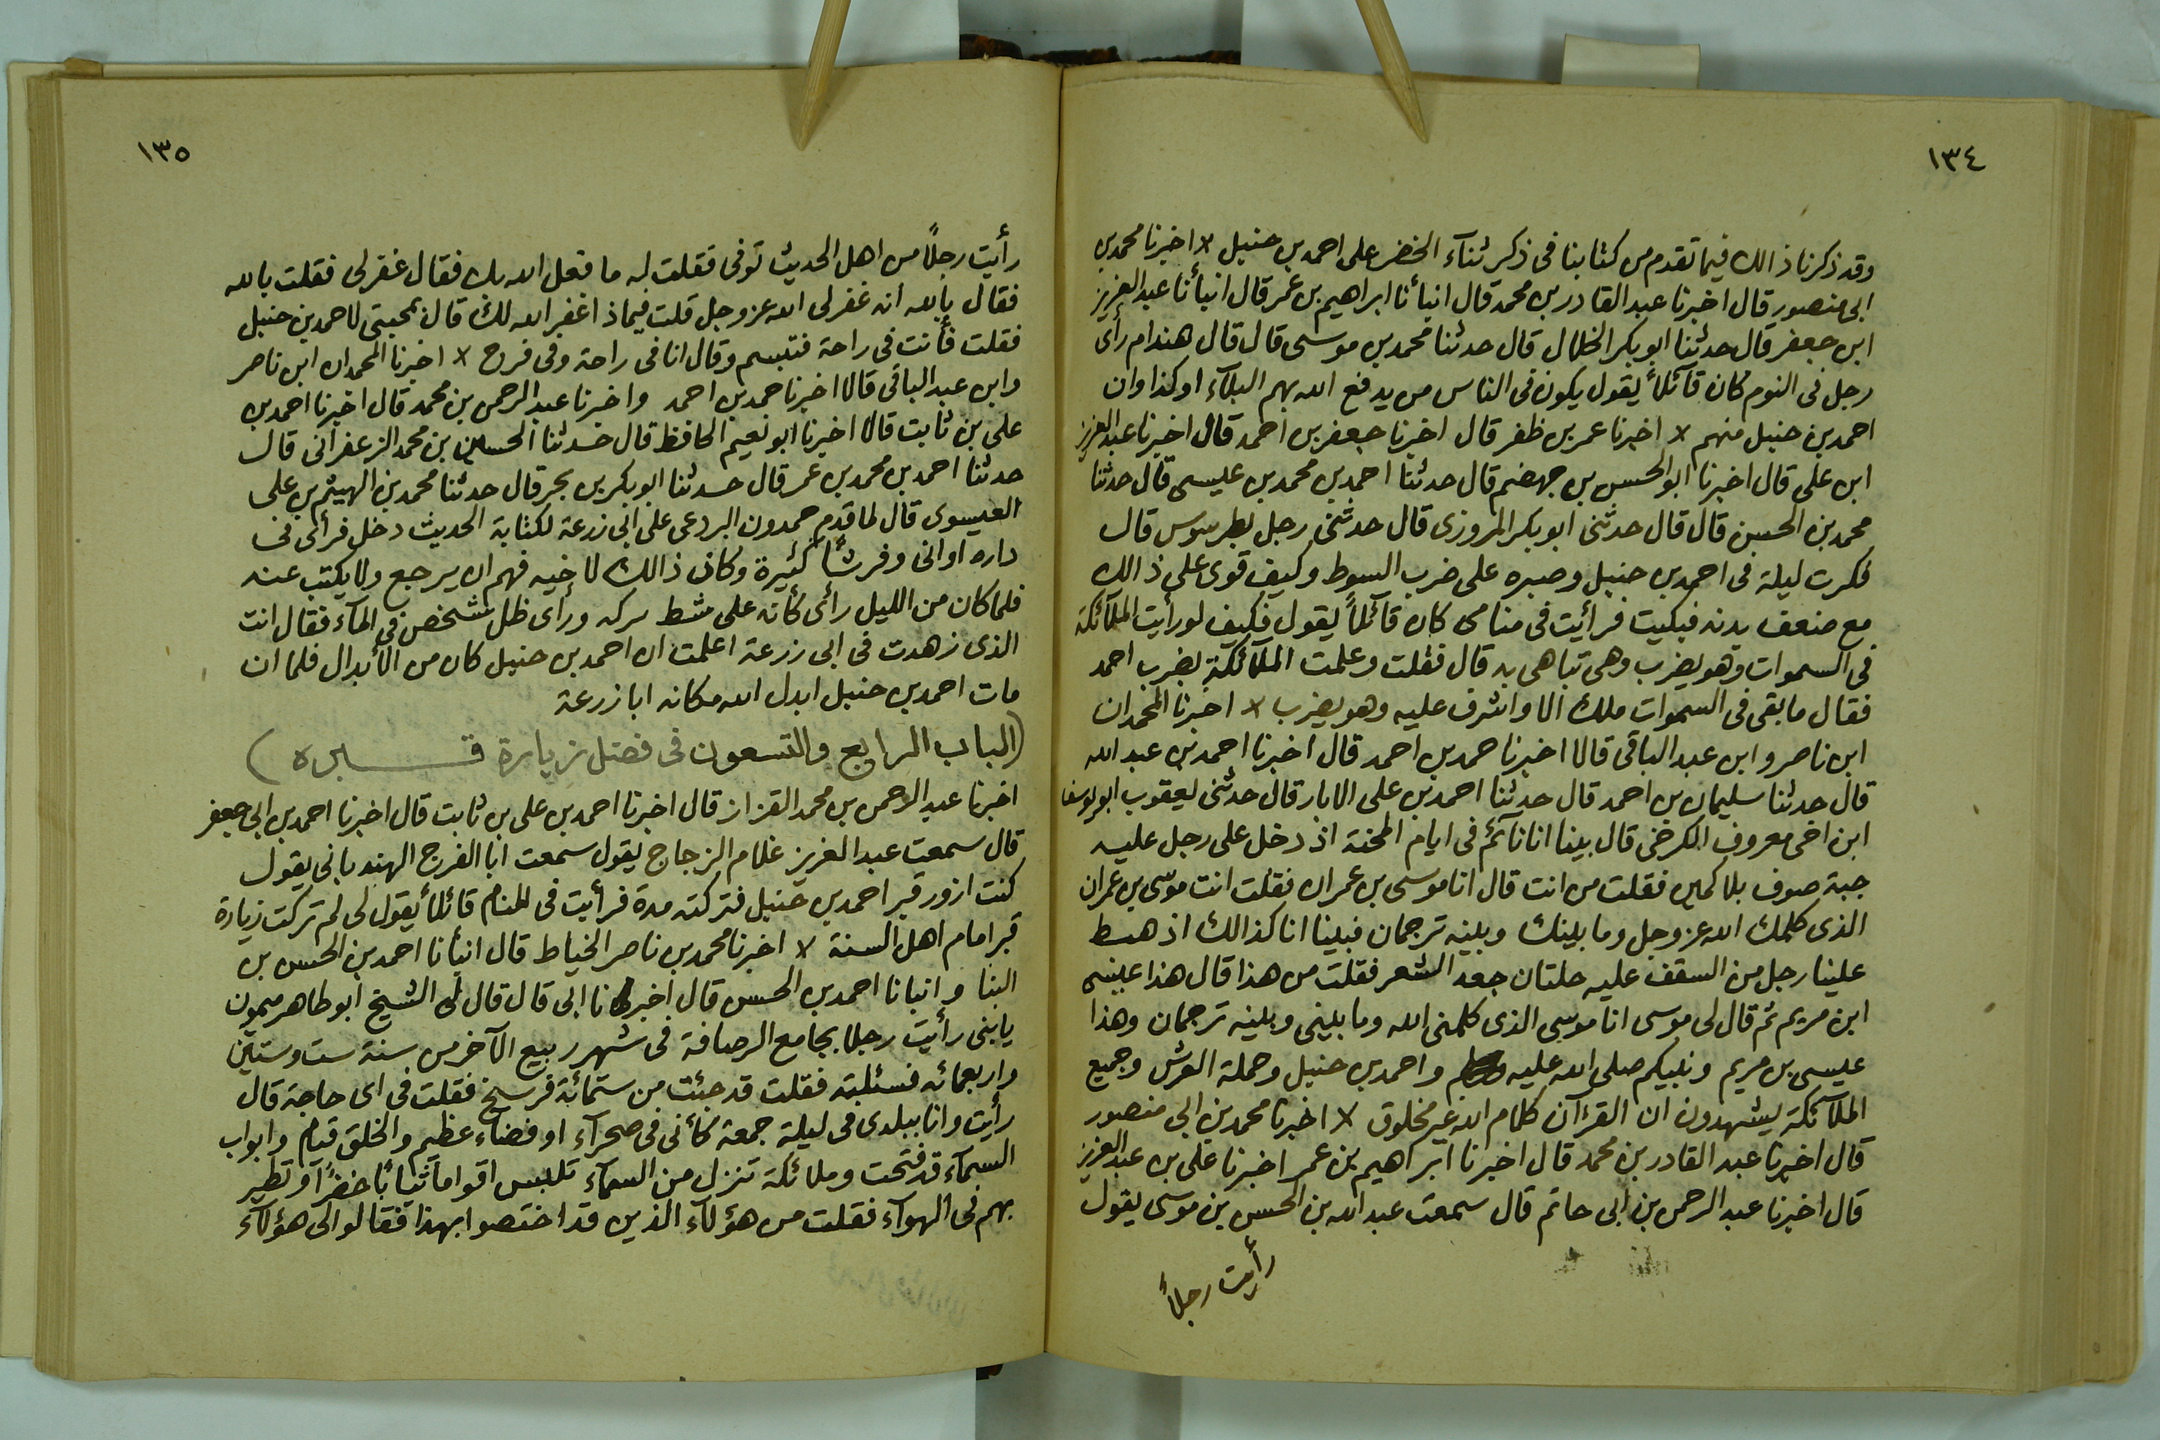 ١٣٤
وقد ذكرنا ذالك فيما تقدم من كتابنا فى ذكر ثنآء الخضر على احمد بن حنبل × اخبرنا محمد بن
ابى منصور قال اخبرنا عبد القادر بن محمد قال انبأنا ابراهيم بن عمر قال انبأنا عبد العزيز
ابن جعفر قال حدثنا ابو بكر الخلال قال حدثنا محمد بن موسى قال قال هندام رأى
رجل فى النوم كان قآئلاً يقول يكون فى الناس من يدفع الله بهم البلآء اوكذا وان
احمد بن حنبل منهم × اخبرنا عمر بن ظفر قال اخبرنا جعفر بن احمد قال اخبرنا عبد العزيز
ابن على قال اخبرنا ابو الحسن بن جهضم قال حدثنا احمد بن محمد بن عليسى قال حدثنا
محمد بن الحسين قال قال حدثنى ابو بكر المروزى قال حدثنى رجل بطرسوس قال
فكرت ليلة فى احمد بن حنبل وصبره على ضرب السوط وكيف قوى على ذالك
مع ضعف بدنه فبكيت فرأيت فى منامى كان قآئلاً يقول فكيف لو رأيت الملآئكة
فى السموات وهو يضرب وهى تباهى به قال فقلت وعلمت الملآئكة بضرب احمد
فقال ما بقى فى السموات ملك الا واشرف عليه وهو يضرب × اخبرنا المحمدان
ابن ناصر وابن عبد الباقى قالا اخبرنا حمد بن احمد قال اخبرنا احمد بن عبد الله
قال حدثنا سليمان بن احمد قال حدثنا احمد بن على الابار قال حدثنى يعقوب ابو يوسف
ابن اخى معروف الكرخى قال بينا انا نآئم فى ايام المحنة اذ دخل على رجل عليه
جبة صوف بلا كمين فقلت من انت قال انا موسى بن عمران فقلت انت موسى بن عمران
الذى كلمك الله عز وجل وما بينك وبينه ترجمان فبينا انا كذالك اذ هبط
علينا رجل من السقف عليه حلتان جعد الشعر فقلت من هذا قال هذا عيسى
ابن مريم ثم قال لى موسى انا موسى الذى كلمنى الله وما بينى وبينه ترجمان وهذا
عيسى بن مريم ونبيكم صلى الله عليه وسلم واحمد بن حنبل وحملة العرش وجميع
الملآئكة يشهدون ان القرآن كلام الله غير مخلوق × اخبرنا محمد بن ابى منصور
قال اخبرنا عبد القادر بن محمد قال اخبرنا ابراهيم بن عمر اخبرنا على بن عبد العزيز
قال اخبرنا عبد الرحمن بن ابى حاتم قال سمعت عبد الله بن الحسن بن موسى يقول
رأيت رجلاً
١٣٥
رأيت رجلاً من اهل الحديث توفى فقلت له ما فعل الله بك فقال غفر لى فقلت بالله
فقال بالله انه غفر لى الله عز وجل قلت فيماذا غفر الله لك قال بمحبتى لاحمد بن حنبل
فقلت فأنت فى راحة فتبسم وقال انا فى راحة وفى فرح × اخبرنا المحمدان ابن ناصر
وابن عبد الباقى قالا اخبرنا حمد بن احمد واخبرنا عبد الرحمن بن محمد قال اخبرنا احمد بن
على بن ثابت قالا اخبرنا ابو نعيم الحافظ قال حدثنا الحسين بن محمد الزعفرانى قال
حدثنا احمد بن محمد بن عمر قال حدثنا ابو بكر بن بحر قال حدثنا محمد بن الهيثم بن على
العيسوى قال لما قدم حمدون البردعى على ابى زرعة لكتابة الحديث دخل فرأى فى
داره اوانى وفرشاً كثيرة وكان ذالك لاخيه فهم ان يرجع ولا يكتب عنه
فلما كان من الليل رأى كأنه على شط بركة ورأى ظل شخص فى المآء فقال انت
الذى زهدت فى ابى زرعة اعلمت ان احمد بن حنبل كان من الأبدال فلما ان
مات احمد بن حنبل ابدل الله مكانه ابا زرعة
(الباب الرابع والتسعون فى فضل زيارة قبره)
اخبرنا عبد الرحمن بن محمد القزاز قال اخبرنا احمد بن على بن ثابت قال اخبرنا احمد بن ابى جعفر
قال سمعت عبد العزيز غلام الزجاج يقول سمعت ابا الفرج الهندبانى يقول
كنت ازور قبر احمد بن حنبل فتركته مدة فرأيت فى المنام قائلاً يقول لى لم تركت زيارة
قبر امام اهل السنة × اخبرنا محمد بن ناصر الخياط قال انبأنا احمد بن الحسن بن
البنا وانبانا احمد بن الحسن قال اخبرنا ابى قال قال لى الشيخ ابو طاهر ميمون
يا بنى رأيت رجلا بجامع الرصافة فى شهر ربيع الآخر من سنة ست وستين
واربعمائه فسئلته فقلت قد جئت من ستمائة فرسخ فقلت فى اى حاجة قال
رأيت وانا ببلدى فى ليلة جمعة كأنى فى صحرآء او فضاء عظيم والخلق قيام وابواب
السمآء قد فتحت وملائكة تنزل من السمآء تلبس اقواماً ثياباً خضرا وتطير
بهم فى الهوآء فقلت من هؤلآء الذين قد اختصوا بهذا فقالوا لى هؤلآء